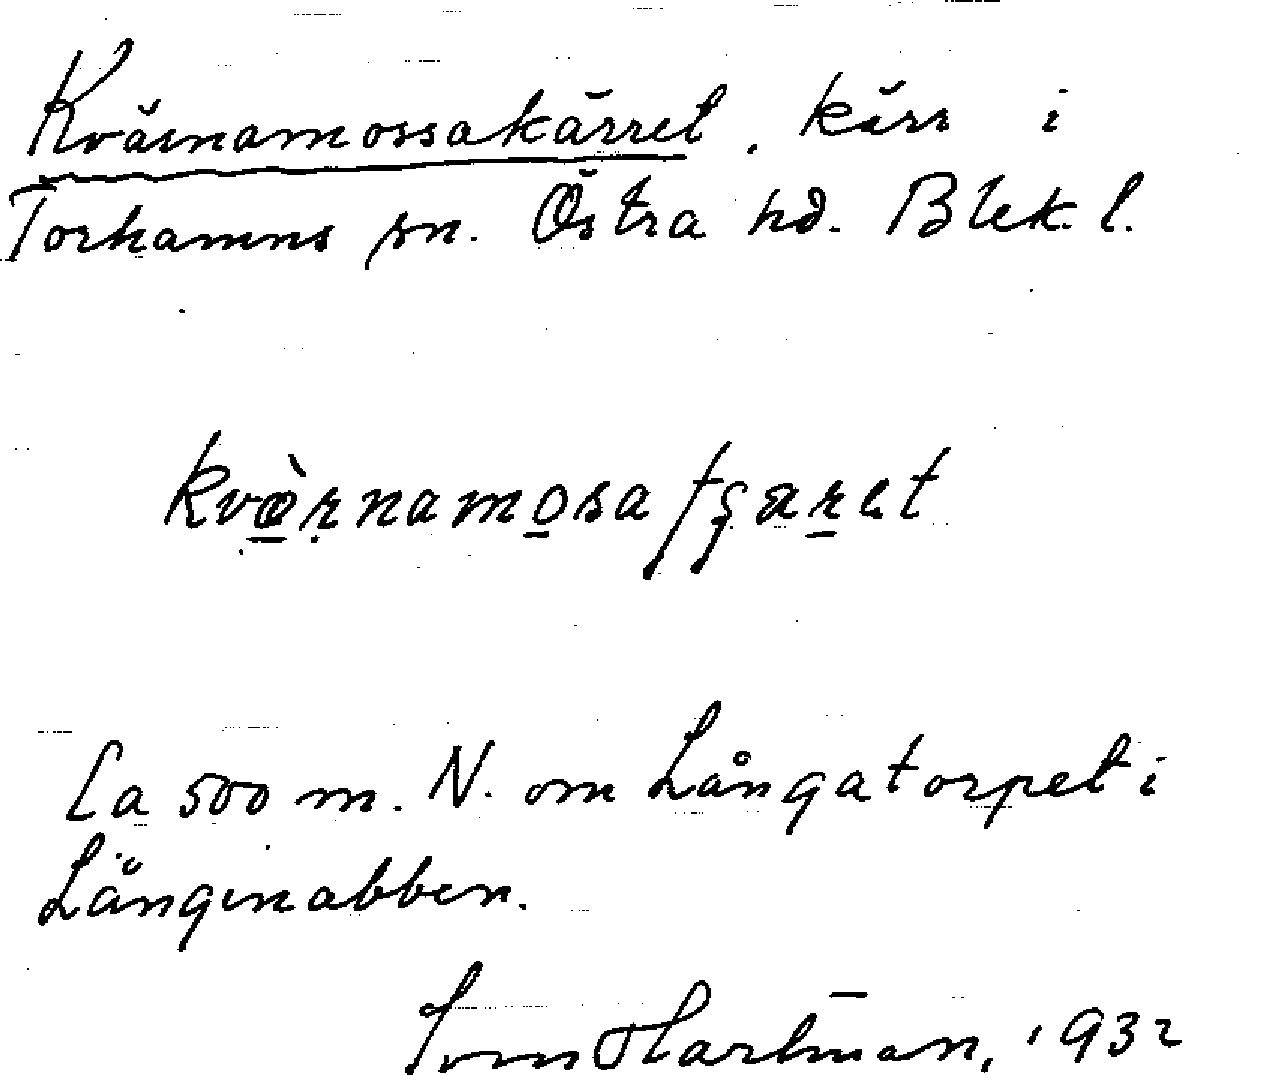 Kvärnamossakärret, kärr i
Torhamns sn. Östra hd. Blek. l.
kvæ̀rnamosa
Ca 500 m. N. om Långatorpet i
Långenabben.
Sven Hartman, 1932